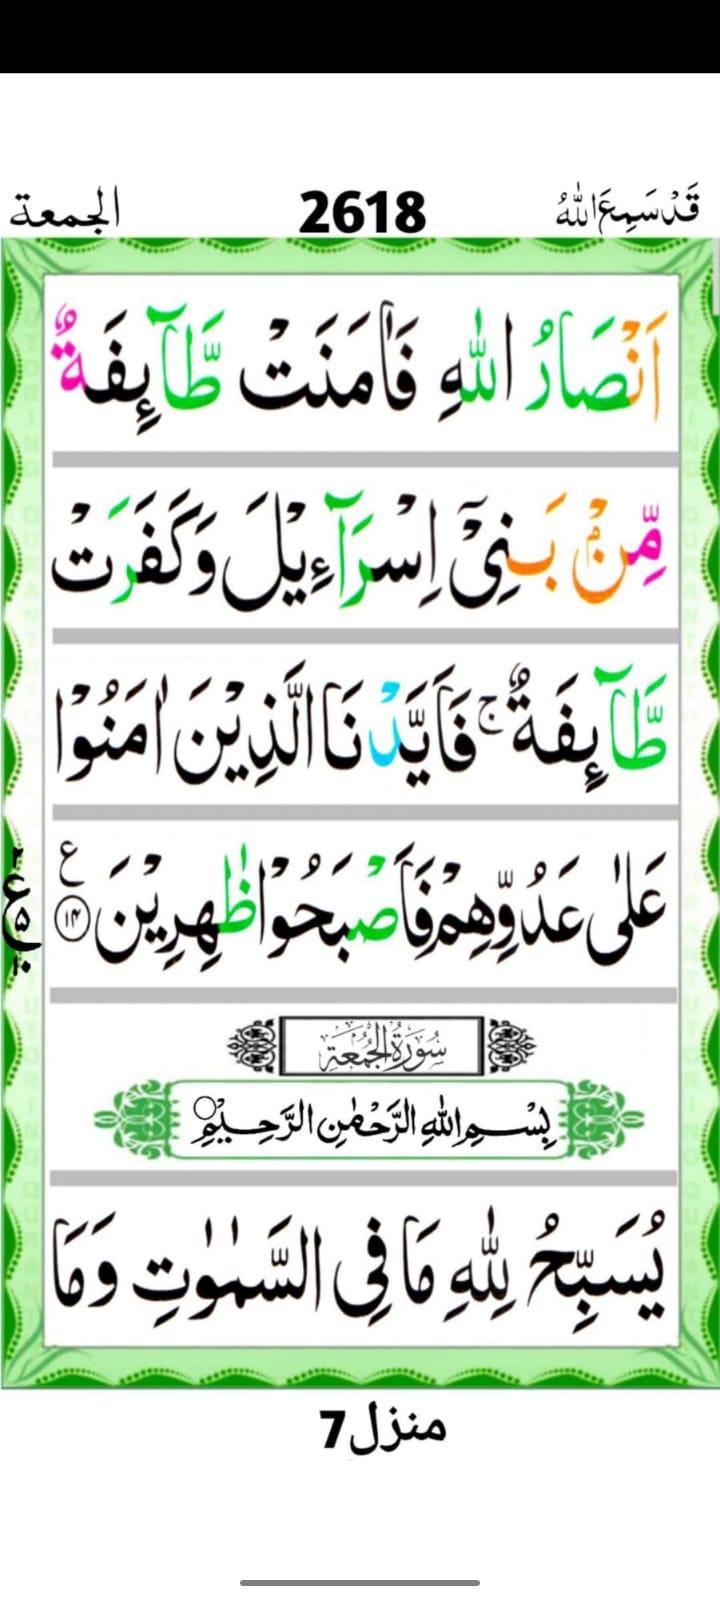 قَدْ سَمِعَ اللهُ 2618 الجمعة
اَنْصَارُ اللّٰهِ فَاٰمَنَتْ طَّآئِفَةٌ
مِّنْۢ بَنِىْۤ اِسْرَآءِيْلَ وَكَفَرَتْ
طَّآئِفَةٌ ۚ فَاَيَّدْنَا الَّذِيْنَ اٰمَنُوْا
عَلٰى عَدُوِّهِمْ فَاَصْبَحُوْا ظٰهِرِيْنَ ﴿۱۴﴾ ع
سُوْرَةُ الْجُمُعَة
بِسْمِ اللّٰهِ الرَّحْمٰنِ الرَّحِيْمِ
يُسَبِّحُ لِلّٰهِ مَا فِى السَّمٰوٰتِ وَمَا
منزل 7